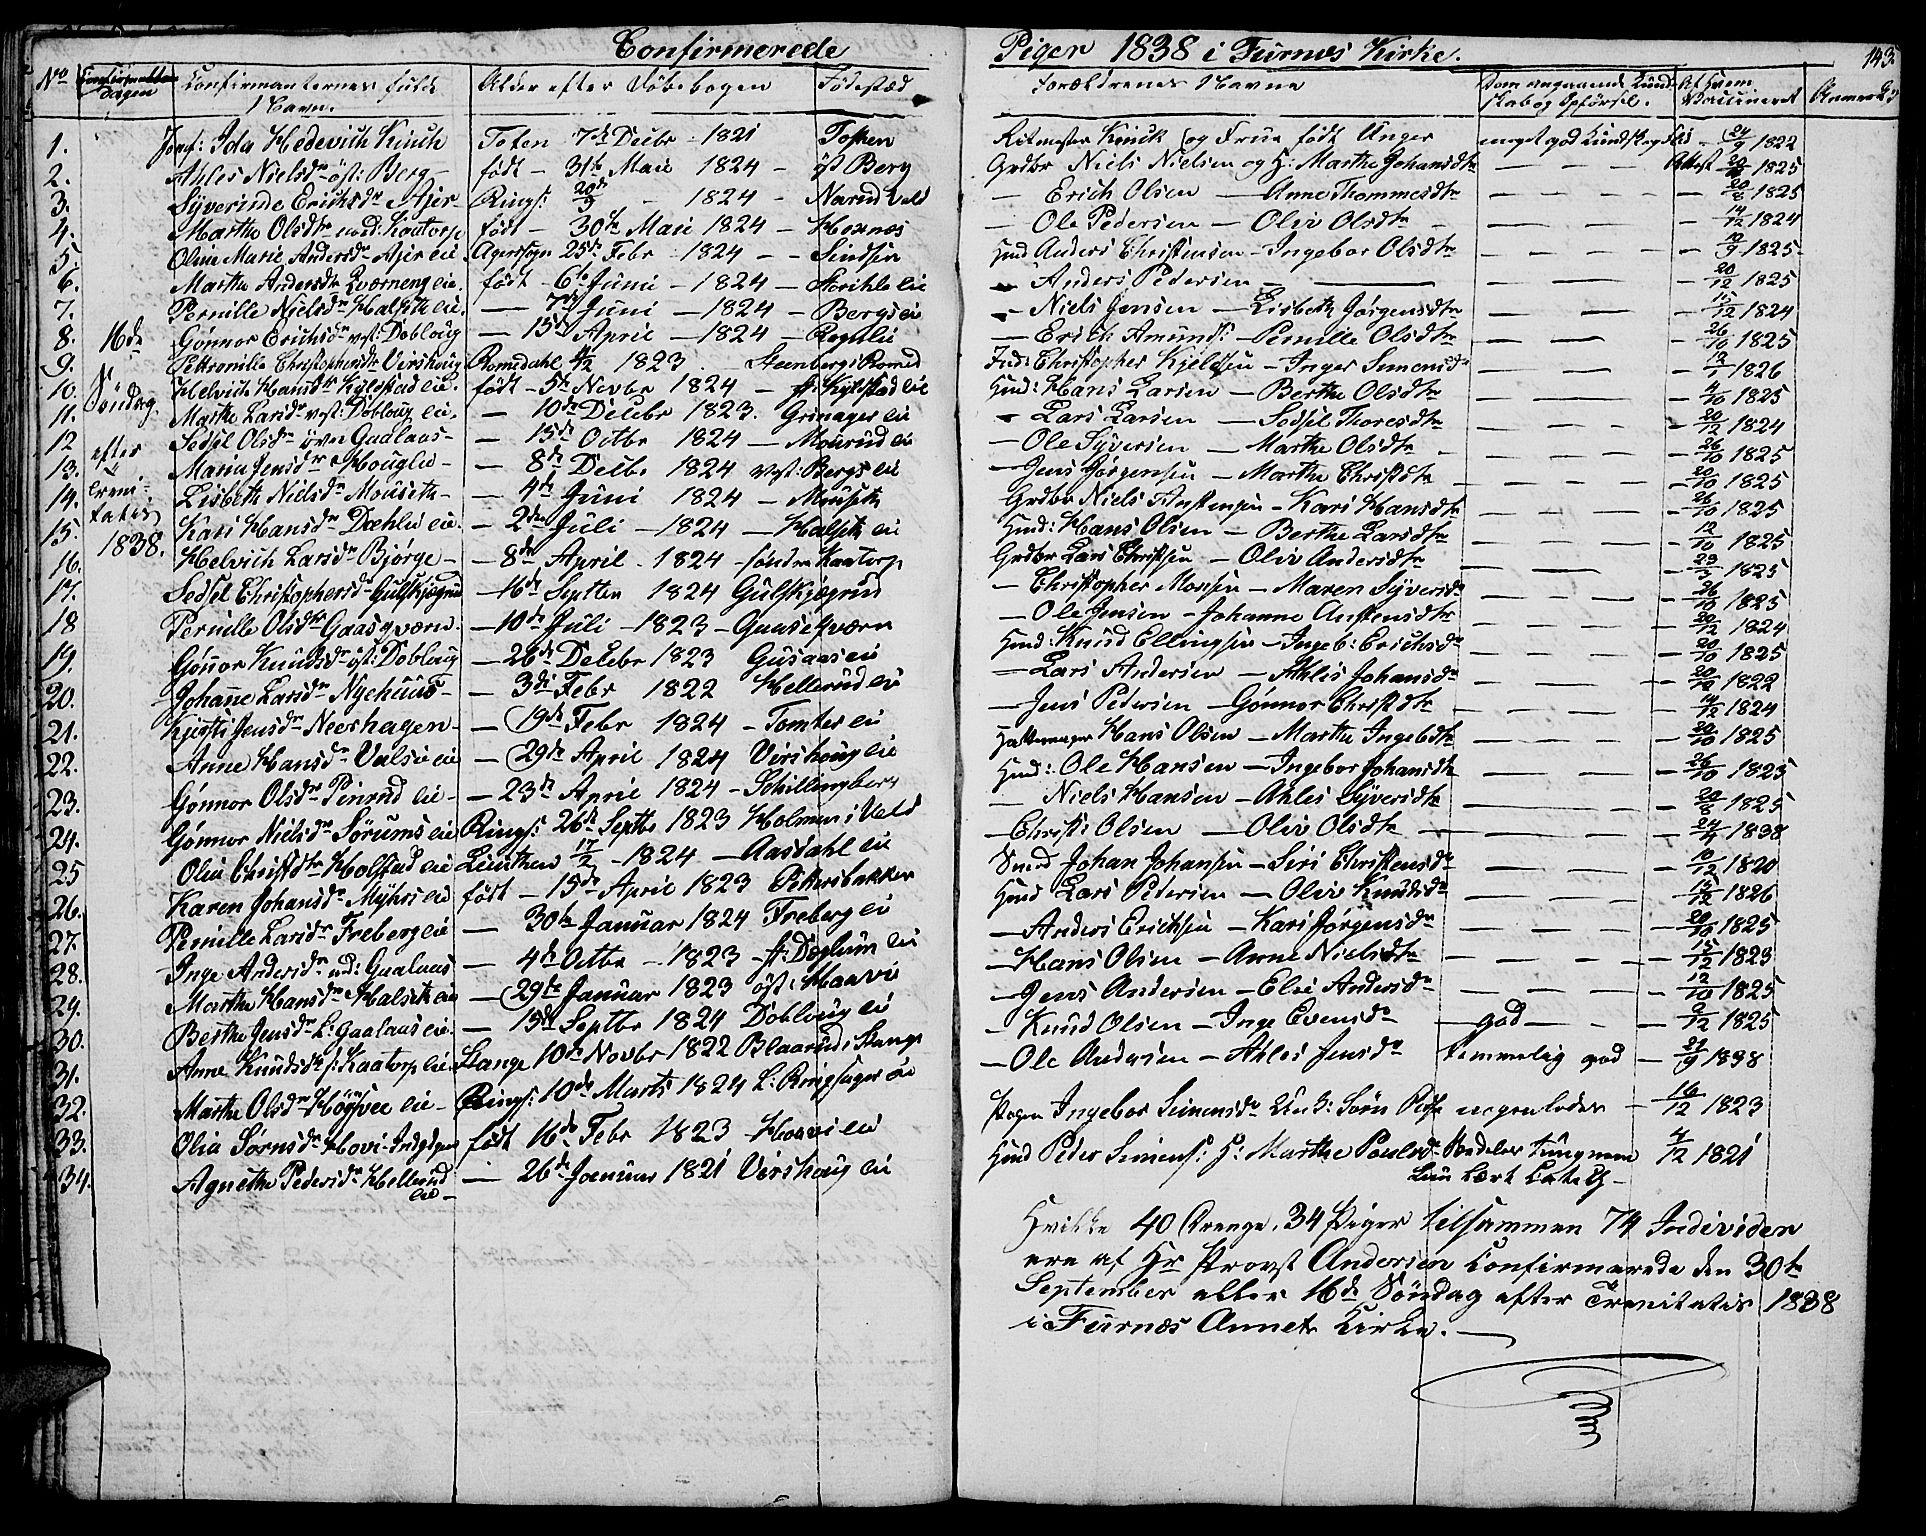 Confirmerede Piger 1838 i Furnæs Kirke.
143
No Confirmations Dagen Confirmanternes fulde Navn. Alder efter Døbebogen Fødestæd Forældrenes Navne Dom angaaende Kundskab og Opførsel. Af hvem Vaccineret Anmerk
16de Søndag efter Trenitatis 1838.
1. Jomf: Ida Hedevich Kinch Toten 7de Decbr 1821 Ritmester Kinck og Frue født Unger meget god Kundskab 24/9 1822
2. Ahles Nielsdr øst: Berg født 31te Mai 1824 øst Berg Grdbr Niels Nielsen og H: Marthe Johansdtr Attest 1825
3. Syverinde Erichsdr Ajer Rings: 20de/9 1824 Narud Vald Erich Olsen Anne Thommesdtr 20/8 1825
4. Marthe Olsdtr nord: Kaatorp født 30te Mai 1824 Hoxnæs Ole Pedersen Oliv Olsdtr 14/12 1824
5. Oline Marie Andersdr Ajer eie Agersogn 25de Febr 1824 Hmd Anders Christensen Ingebor Olsdtr 1825
6. Marthe Andersdtr Kværneng eie født 6te Juni 1824 Storihle eie Anders Pedersen 20/12 1825
7. Pernille Nielsdr Halset eie 7de Juni 1824 Bergs eie Niels Jensen Lisbeth Jørgensdtr 1824
8. Gønnor Erichsdr vest: Dobloug 15de April 1824 Erich Amunds: Pernille Olsdtr 26/10 1825
9. Pettronille Christophersdtr Virshoug Romedahl 1823 Steenberg i Romed Ind: Christopher Kjeldsen Inger Simensdr 1826
10. Helvich Hansdtr Kylstad eie født 5te Novbr 1824 Kylstad eie Hmd: Hans Larsen Berthe Olsdtr 4/10 1825
11. Marthe Larsdr vest: Dobloug eie. 10de Decebr 1823. Grimager eie Lars Larsen Sedsel Thoresdtr 20/12 1824
12 Sedsel Olsdr øvre Gaalaas 15de Octbr 1824 Mourud eie Ole Syversen Marthe Olsdtr 26/10 1825
13. Maria Jensdr Houglie 8de Decbr 1824 vest: Bergs eie Jens Jørgensen Marthe Christdtr 20/10 1825
14. Lisbeth Nielsdr Mouseth 4de Juni 1824 Mouseth Grdbr Niels Anstensen Kari Hansdtr 26/10 1825
15. Kari Hansdr Dæhlie eie 2den Juli 1824 Halset eie Hmd: Hans Olsen Berthe Larsdtr 12/10 1825
16. Helvich Larsdr Bjørge 8de April 1824 søndre Kaatorp Grdbr Lars Christsen Oliv Andersdtr 1825
17. Sedsel Christophersdr Gulskjegrud 16de Septbr 1824 Gulskjegrud Christopher Monsen Maren Syversdr 26/10 1825
18 Pernille Olsdtr Gaasqværn 10de Juli 1823 Gaaseqværn Ole Jensen Johanne Anstensdtr 20/12 1824
19. Gønnor Knudsdr øst: Dobloug 26de Decebr 1823 Gusaas eie Hmd: Knud Ellingsen Ingeb: Erichsdr 20/10 1825
20. Johanne Larsdr Nyehuus 3de Febr 1822 Hellerud eie Lars Andersen Ahles Johansdr 20/12 1822
21. Kjersti Jensdr Neershagen 19de Febr 1824 Tomter eie Jens Pedersen Gønnor Christdtr 14/12 1824
22. Anne Hansdr Valsie eie 29de April 1824 Virshoug eie Hattemager Hans Olsen Marthe Ingebdtr 20/10 1825
23. Gønnor Olsdr Pinrud eie 23de April 1824 Schillingberg Hmd: Ole Hansen Ingebor Johansdtr 26/10 1825
24. Gønnor Nielsdr Sørums eie Rings: 26de Septbr 1823 Holmen i Vald Niels Hansen Ahles Syversdtr 1825
25 Olia Christdtr Holstad eie Leuthen 17/2 1824 Aasdahl eie Christ: Olsen Oliv Olsdtr 1838
26. Karen Johansdr Myhrs eie født 15de April 1823 Pettersbakken Smed Johan Johansen Siri Christensdr 10/12 1820
27. Pernille Larsdr Freberg eie 30te Januar 1824 Freberg eie Hmd Lars Pedersen Oliv Knudsdr 1826
28. Inge Andersdr nd: Gaalaas 4de Octbr 1823 Anders Erichsen Kari Jørgensdr 20/10 1825
29. Marthe Hansdr Halset eie 29de Januar 1823 Hans Olsen Anne Nielsdtr 15/12 1823
30. Berthe Jensdr L: Gaalaas eie 15de Septbr 1824 Dobloug eie Jens Andersen Else Andersdr 12/10 1825
31. Anne Knudsdr s: Kaatorp eie Stange 10de Novbr 1822 Blaarud i Stange Knud Olsen Inge Evensdr god 1825
32. Marthe Olsdr Høysvee eie Rings: 10de Marts 1824 L: Ringsager eie Ole Andersen Ahles Jensdr temmelig god 1838
33. Olia Sørnsdr Hovi født 16de Febr 1823 Hoxvi eie Pigen Ingebor Simensdr Søn megen lader 16/12 1823
34. Agnethe Pedersdr Hellerud eie 26de Januar 1821 Virshoug eie Hmd Peder Simens: H: Marthe Poulsdr tungnem kun lært Catech 4/12 1821
Hvilke 40 Drenge, 34 Piger tilsammen 74 Individer
ere af Hr Provst Andersen Confirmerede den 30te
September eller 16de Søndag efter Trenitatis 1838
i Furnæs Annex Kirke.